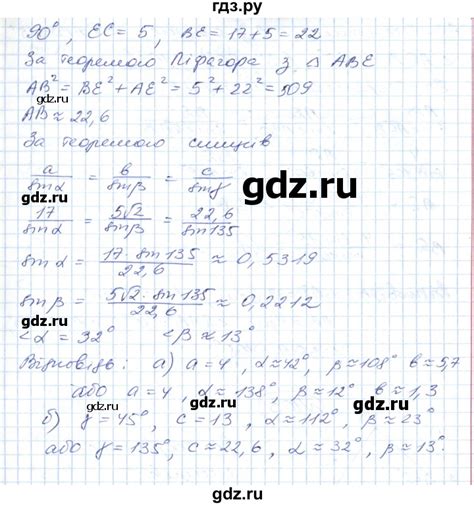 гдз.ру
90°, EC = 5, BE = 17 + 5 = 22
За теоремою Піфагора з △ ABE
AB² = BE² + AE² = 5² + 22² = 509
AB ≈ 22,6
За теоремою синусів
a/sinα = b/sinβ = c/sinγ
gdz.ru
17/sinα = 5√2/sinβ = 22,6/sin135
sinα = 17·sin135/22,6 ≈ 0,5319
sinβ = 5√2·sin135/22,6 ≈ 0,2212
<α = 32° <β ≈ 13°
Відповідь: а) a = 4, α ≈ 42°, β ≈ 108° b ≈ 5,7
або a = 4, α ≈ 138°, β ≈ 12° b ≈ 1,3
б) γ = 45°, c = 13, α ≈ 112°, β ≈ 23°
або γ = 135°, c ≈ 22,6, α ≈ 32°, β ≈ 13°.
gdz.ru